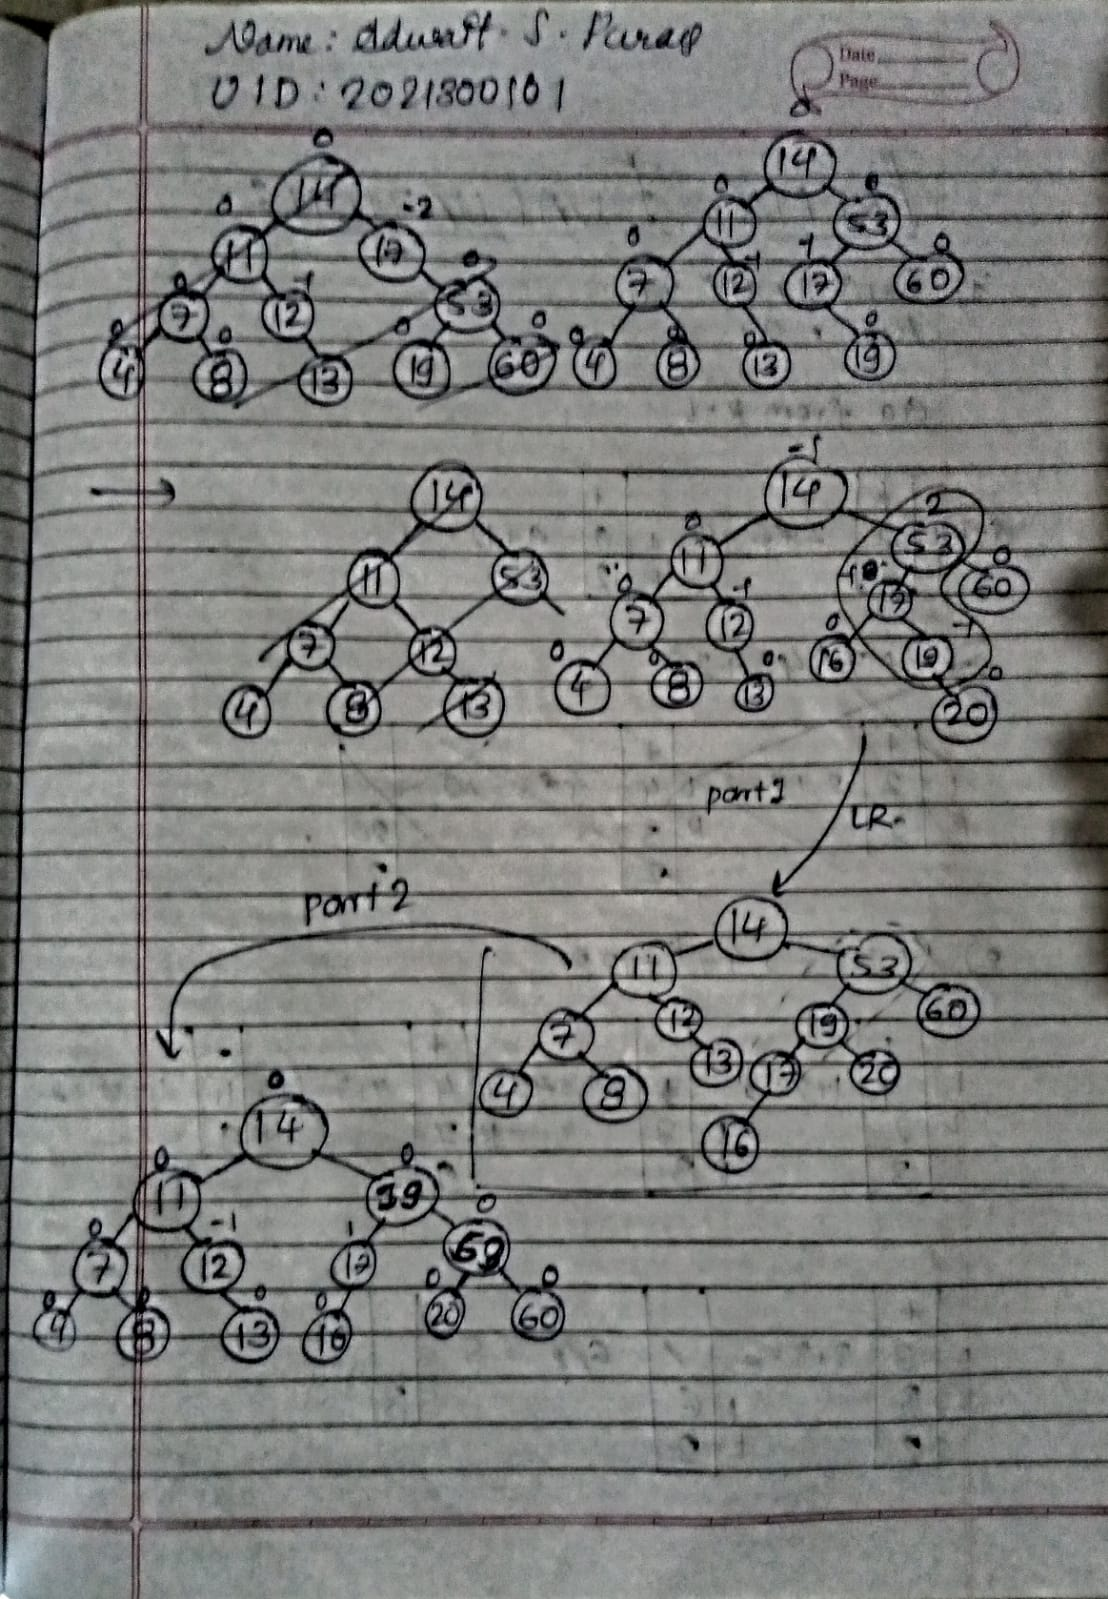 Name: Adwait S. Purao
UID: 2021300101
Date
Page
0
14
0 -2
11 17
0 -1 0
7 12 53
0 0 0 0
4 8 13 19 60
0
14
0 0
11 53
0 -1 -1 0
7 12 17 60
0 0 0 0
4 8 13 19
→
14
11 53
7 12
4 8 13
-1
14
0 2
11 53
0 -1 0
7 12 17 60
0 0 0 0 -1
4 8 13 16 19
0
20
part 1
LR.
part 2
14
11 53
7 12 19 60
4 8 13 17 20
16
0
14
0 0
11 19
0 -1 1 0
7 12 17 53
0 0 0 0 0 0
4 8 13 16 20 60